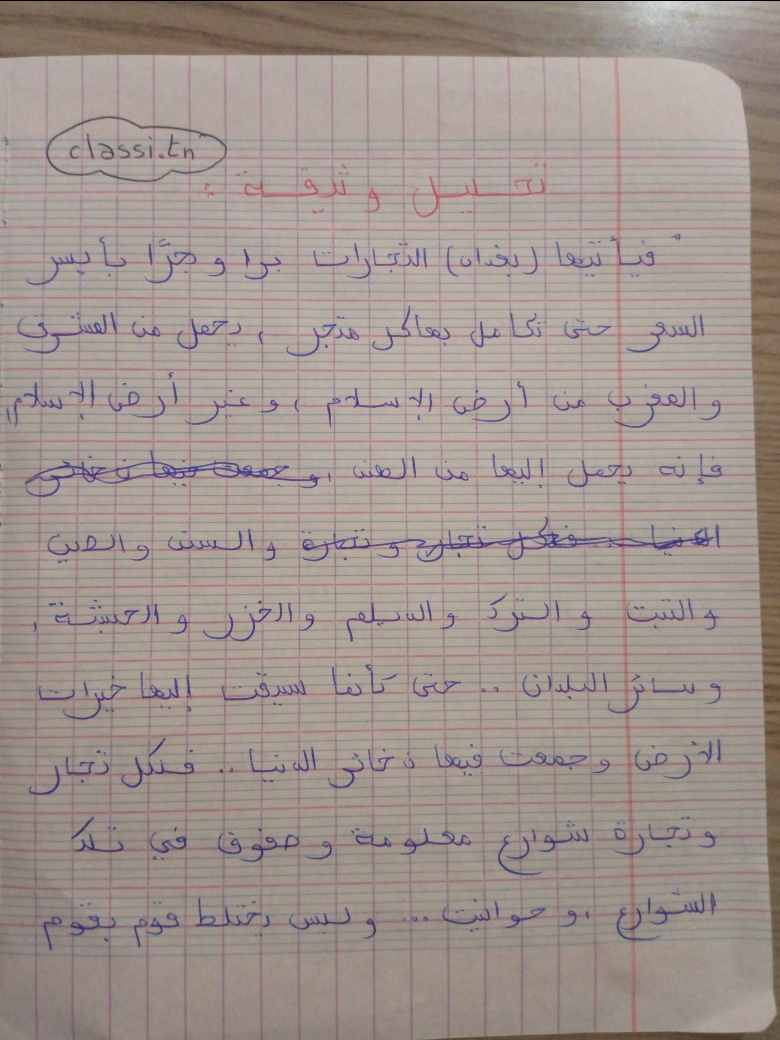 classi.tn
تحليل وثيقة :
"فيأتيها (بغداد) التجارات برا وجرًا بأيسر
السعر حتى تكامل بهاكر متجر ، يحمل من المشرق
والمغرب من أرض الإسلام ، وغير أرض الإسلام,
فإنه يحمل إليها من الهند ، وجمعت فيها ذخائر
الدنيا .. فكل تجار وتجارة والسند والصين
والتبت والترك والديلم والخزر والحبشة ,
وسائر البلدان .. حتى كأنما سيقت إليها خيرات
الأرض وجمعت فيها ذخائر الدنيا .. فكل تجار
وتجارة شوارع معلومة وصفوق في تلك
الشوارع ، وحوانيت ... وليس يختلط قوم بقوم